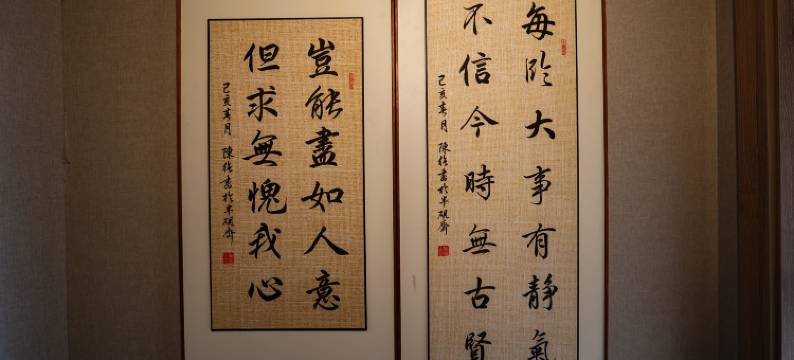 每臨大事有靜氣
不信今時無古賢
己亥春月 陳書於半硯齋
豈能盡如人意
但求無愧我心
己亥春月 陳書於半硯齋